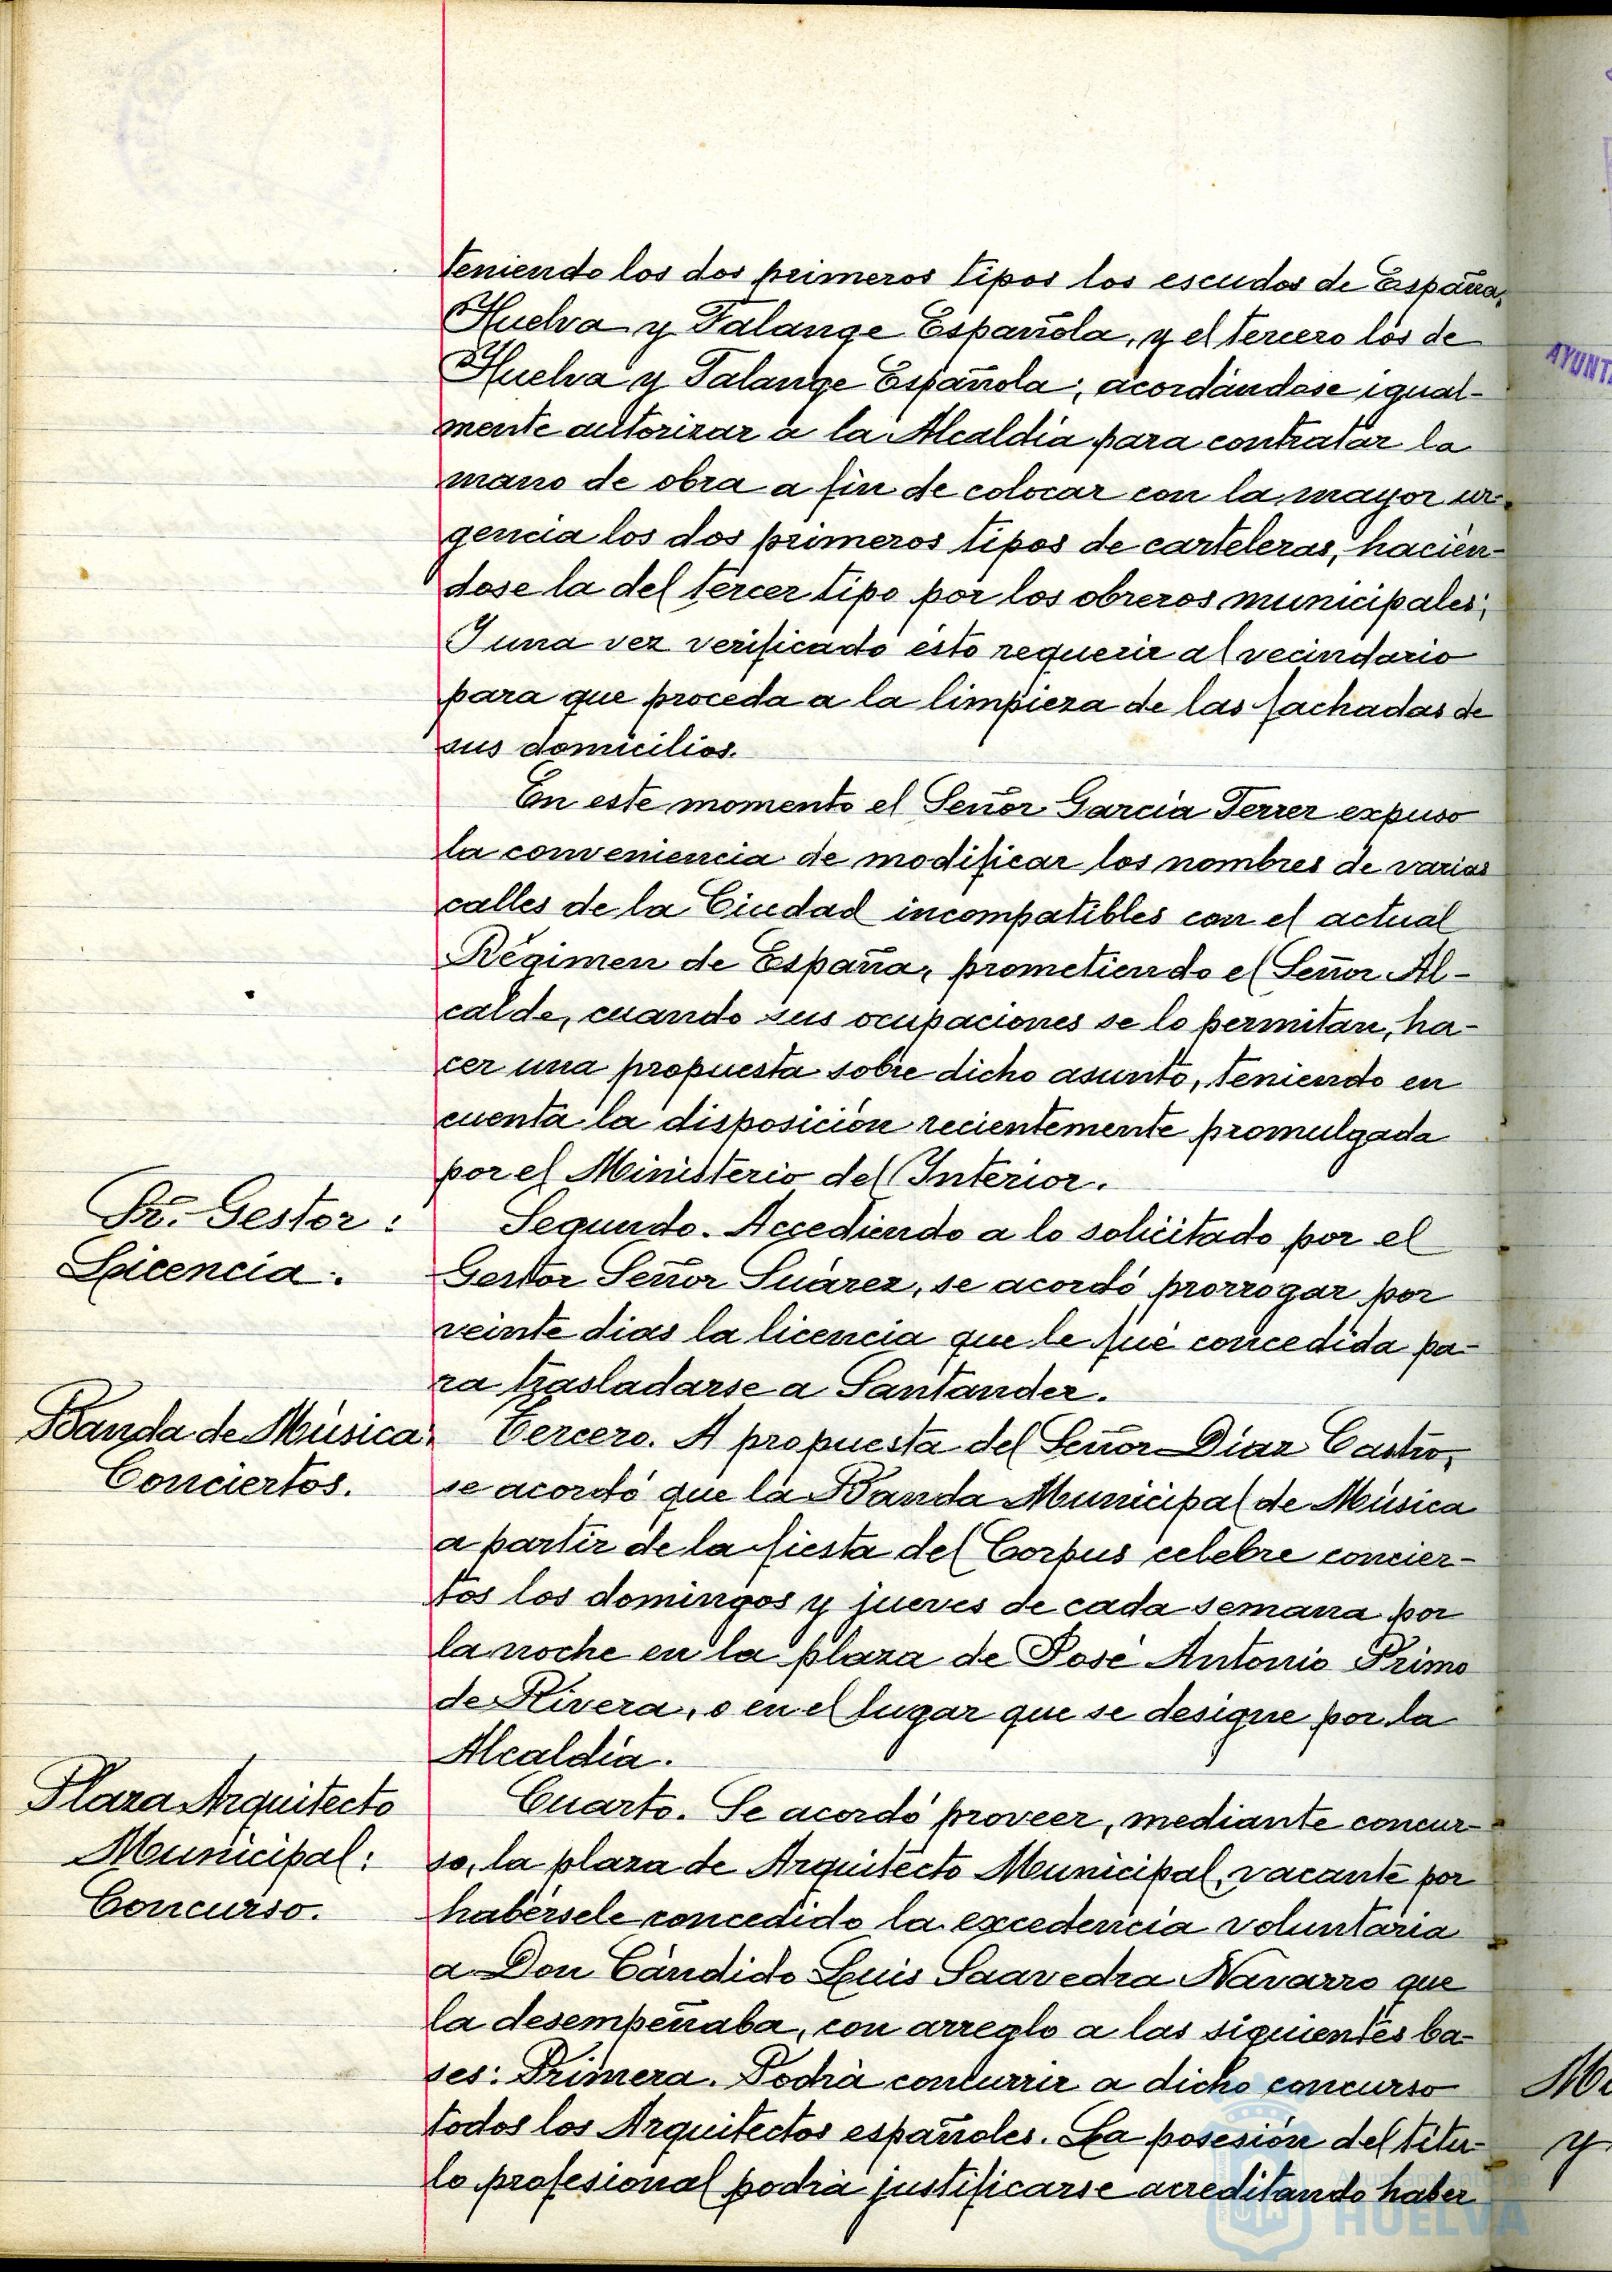 teniendo los dos primeros tipos los escudos de España,
Huelva y Falange Española, y el tercero los de
Huelva y Falange Española; acordándose igual-
mente autorizar a la Alcaldía para contratar la
mano de obra a fin de colocar con la mayor ur-
gencia los dos primeros tipos de carteleras, hacién-
dose la del tercer tipo por los obreros municipales;
Y una vez verificado ésto requerir al vecindario
para que proceda a la limpieza de las fachadas de
sus domicilios.
En este momento el Señor García Ferrer expuso
la conveniencia de modificar los nombres de varias
calles de la Ciudad incompatibles con el actual
Régimen de España, prometiendo el Señor Al-
calde, cuando sus ocupaciones se lo permitan, ha-
cer una propuesta sobre dicho asunto, teniendo en
cuenta la disposición recientemente promulgada
por el Ministerio del Interior.
Sr. Gestor:
Licencia.
Segundo. Accediendo a lo solicitado por el
Gestor Señor Suárez, se acordó prorrogar por
veinte dias la licencia que le fué concedida pa-
ra trasladarse a Santander.
Banda de Música,
Conciertos.
Tercero. A propuesta del Señor Díaz Castro,
se acordó que la Banda Municipal de Música
a partir de la fiesta del Corpus celebre concier-
tos los domingos y jueves de cada semana por
la noche en la plaza de José Antonio Primo
de Rivera, o en el lugar que se designe por la
Alcaldía.
Plaza Arquitecto
Municipal:
Concurso.
Cuarto. Se acordó proveer, mediante concur-
so, la plaza de Arquitecto Municipal, vacante por
habérsele concedido la excedencia voluntaria
a Don Cándido Luis Saavedra Navarro que
la desempeñaba, con arreglo a las siguientes ba-
ses: Primera. Podrá concurrir a dicho concurso
todos los Arquitectos españoles. La posesión del títu-
lo profesional podrá justificarse acreditando haber
AYUNTA
M
y
Ayuntamiento de
HUELVA